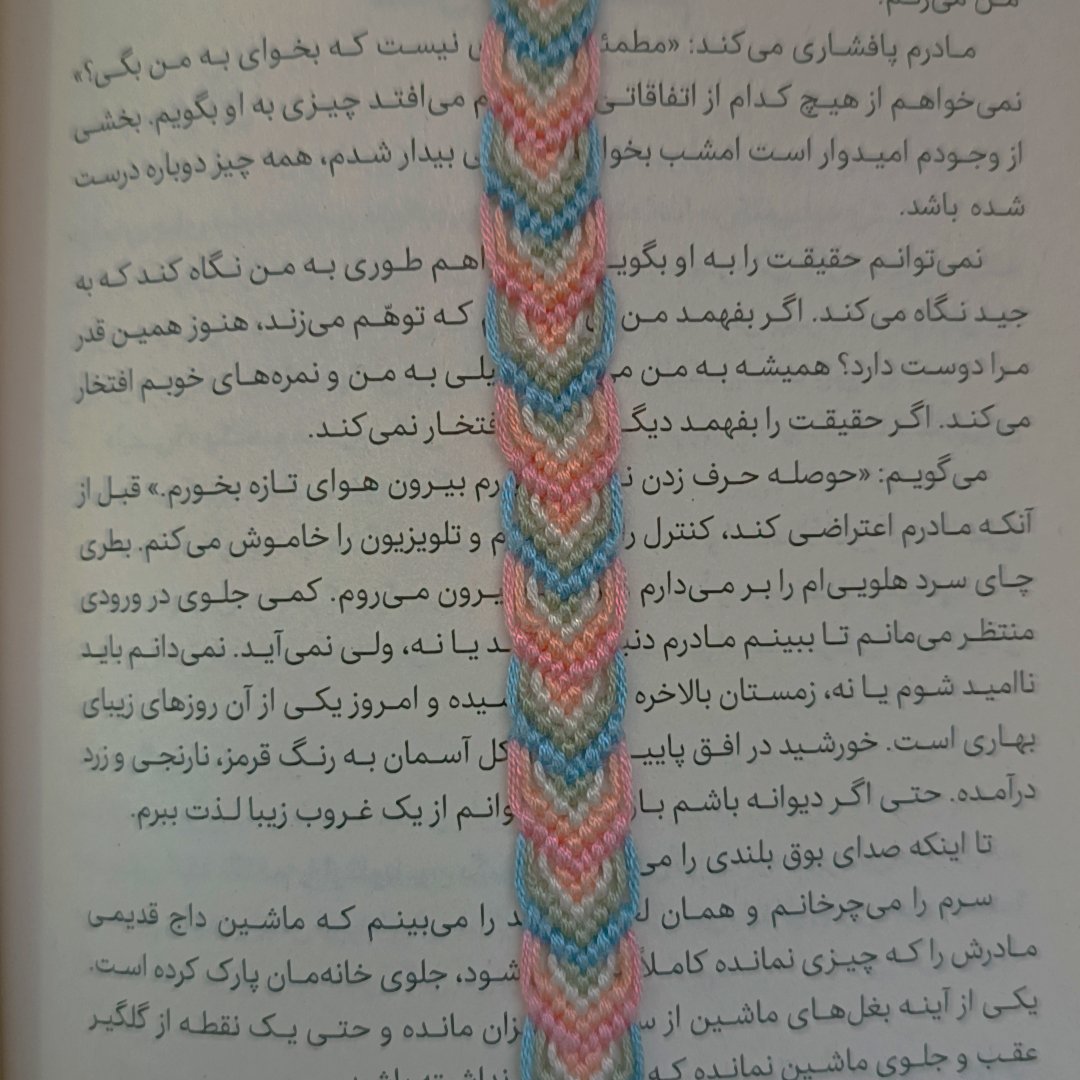 مادرم پافشاری می‌کند: «مطمئ نیست که بخوای به من بگی؟»
نمی‌خواهم از هیچ کدام از اتفاقاتی می‌افتد چیزی به او بگویم. بخشی
از وجودم امیدوار است امشب بخوا بیدار شدم، همه چیز دوباره درست
شده باشد.
نمی‌توانم حقیقت را به او بگویـ اهم طوری به من نگاه کند که به
جید نگاه می‌کند. اگر بفهمد من که توهّم می‌زند، هنوز همین قدر
مرا دوست دارد؟ همیشه به من یلی به من و نمره‌های خوبم افتخار
می‌کند. اگر حقیقت را بفهمد دیگـ فتخار نمی‌کند.
می‌گویم: «حوصله حرف زدن رم بیرون هوای تازه بخورم.» قبل از
آنکه مادرم اعتراضی کند، کنترل و تلویزیون را خاموش می‌کنم. بطری
چای سرد هلویی‌ام را بر می‌دارم یرون می‌روم. کمی جلوی در ورودی
منتظر می‌مانم تا ببینم مادرم دنبـ ـد یا نه، ولی نمی‌آید. نمی‌دانم باید
ناامید شوم یا نه، زمستان بالاخره سیده و امروز یکی از آن روزهای زیبای
بهاری است. خورشید در افق پاییـ کل آسمان به رنگ قرمز، نارنجی و زرد
درآمده. حتی اگر دیوانه باشم بـا وانم از یک غروب زیبا لذت ببرم.
تا اینکه صدای بوق بلندی را می
سرم را می‌چرخانم و همان لـ را می‌بینم که ماشین داج قدیمی
مادرش را که چیزی نمانده کاملاً شود، جلوی خانه‌مان پارک کرده است.
یکی از آینه بغل‌های ماشین از سـ زان مانده و حتی یک نقطه از گلگیر
عقب و جلوی ماشین نمانده که